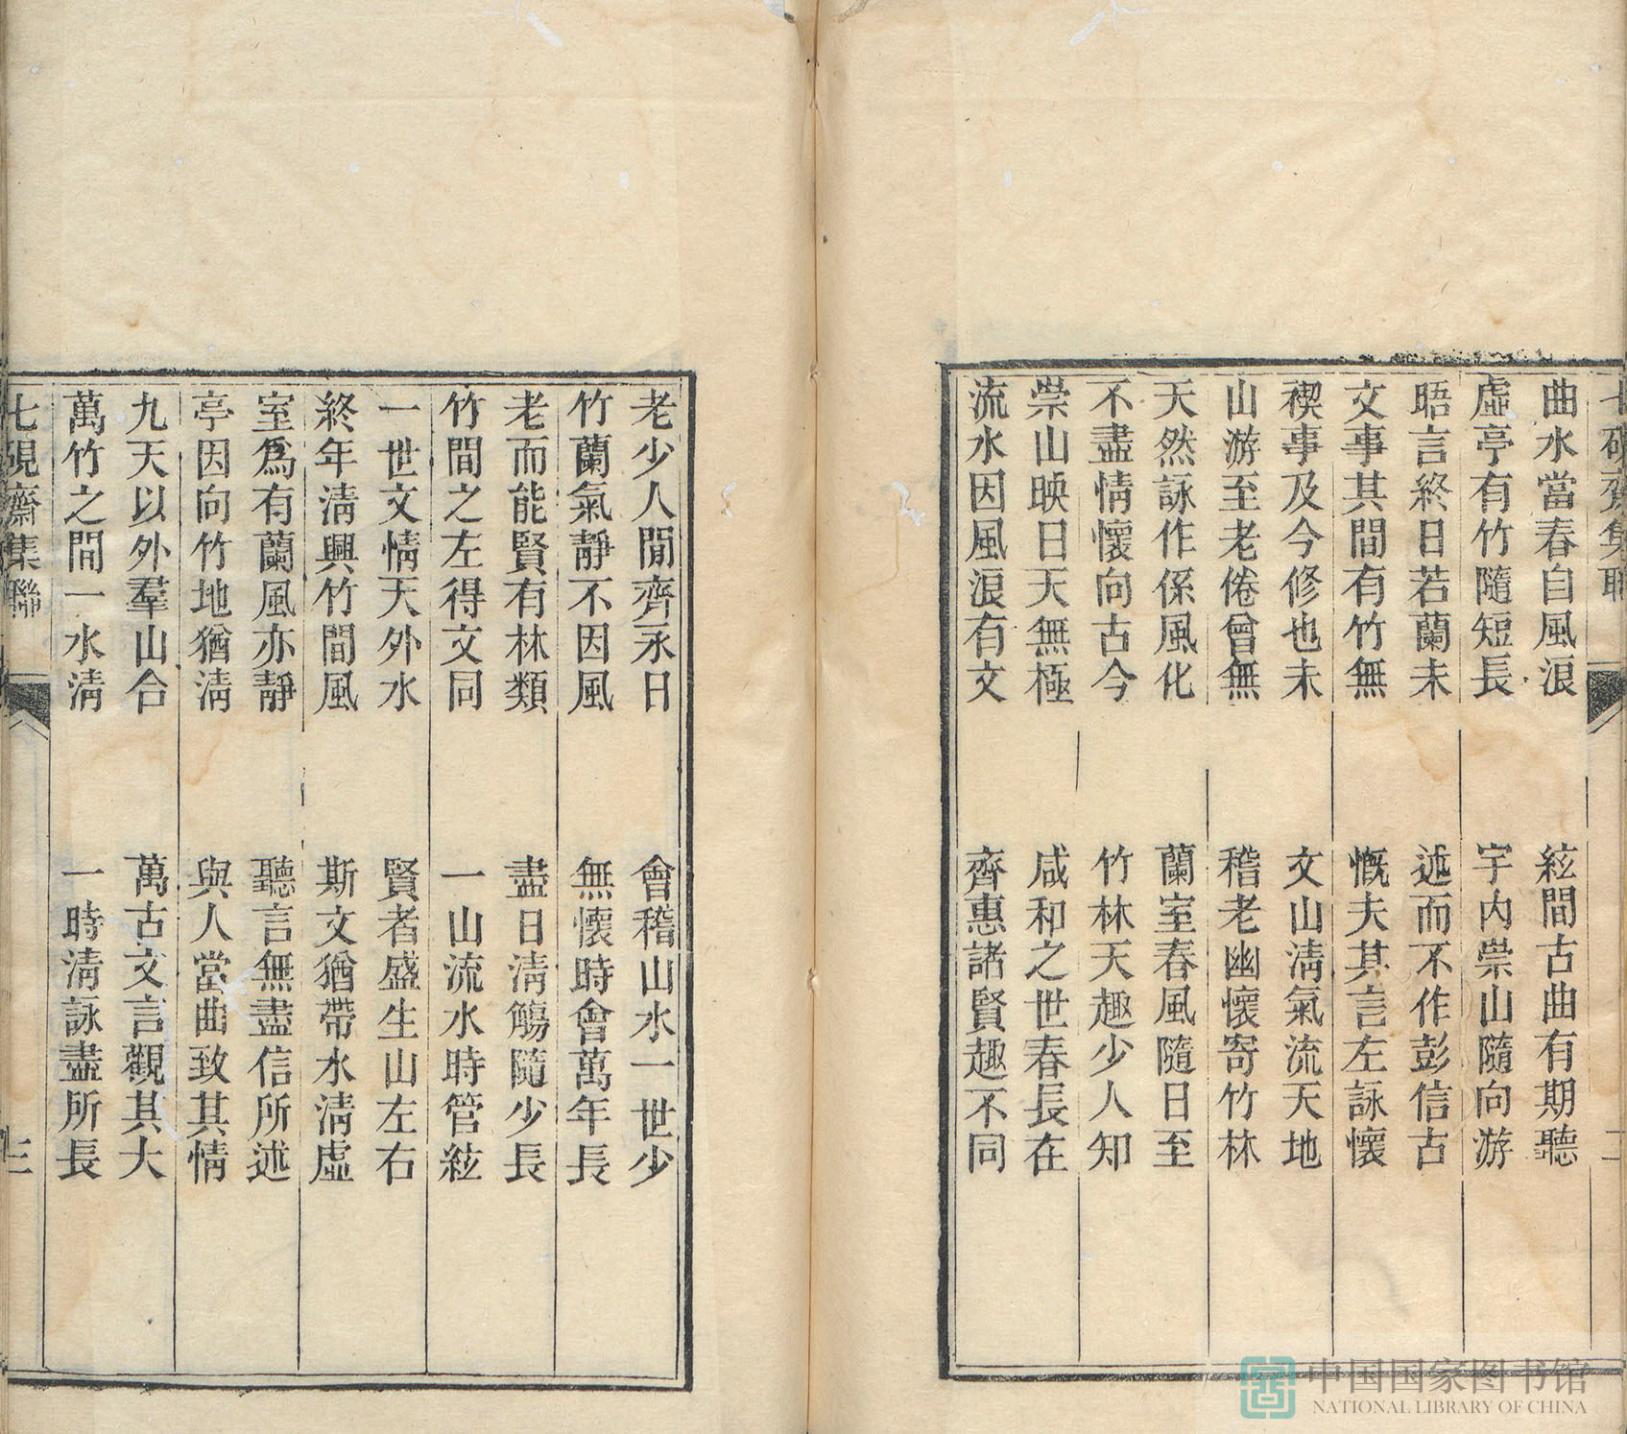 曲水當春自風浪　絃間古曲有期聽
虛亭有竹隨短長　宇內崇山隨向游
晤言終日若蘭未　述而不作彭信古
文事其間有竹無　慨夫其言左詠懷
禊事及今修也未　文山淸氣流天地
山游至老倦曾無　稽老幽懷寄竹林
天然詠作係風化　蘭室春風隨日至
不盡情懷向古今　竹林天趣少人知
崇山映日天無極　咸和之世春長在
流水因風浪有文　齊惠諸賢趣不同
老少人閒齊永日　會稽山水一世少
竹蘭氣靜不因風　無懷時會萬年長
老而能賢有林類　盡日淸觴隨少長
竹間之左得文同　一山流水時管絃
一世文情天外水　賢者盛生山左右
終年淸興竹間風　斯文猶帶水淸虛
室爲有蘭風亦靜　聽言無盡信所述
亭因向竹地猶淸　與人當曲致其情
九天以外羣山合　萬古文言觀其大
萬竹之間一水淸　一時淸詠盡所長
七硯齋集聯　三
中国国家图书馆
NATIONAL LIBRARY OF CHINA